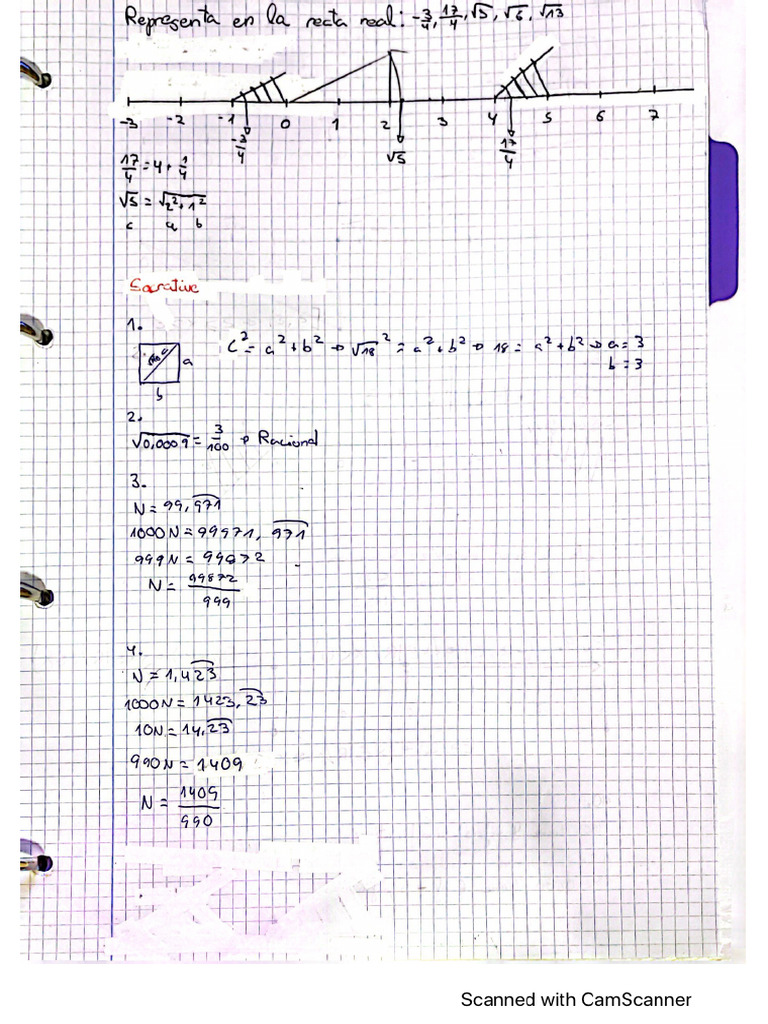 Representa en la recta real: -3/4, 17/4, √5, √6, √13
-3 -2 -1 0 1 2 3 4 5 6 7
-3/4 √5 17/4
17/4 = 4 + 1/4
√5 = √2²+1²
c a b
1.
a
b
C² = a² + b² → √18² = a² + b² → 18 = a² + b² → a = 3
b = 3
2.
√0,0009 = 3/100 → Racional
3.
N = 99,971
1000N = 99971, 971
999N = 99872
N = 99872/999
4.
N = 1,423
1000N = 1423,23
10N = 14,23
990N = 1409
N = 1409/990
Scanned with CamScanner